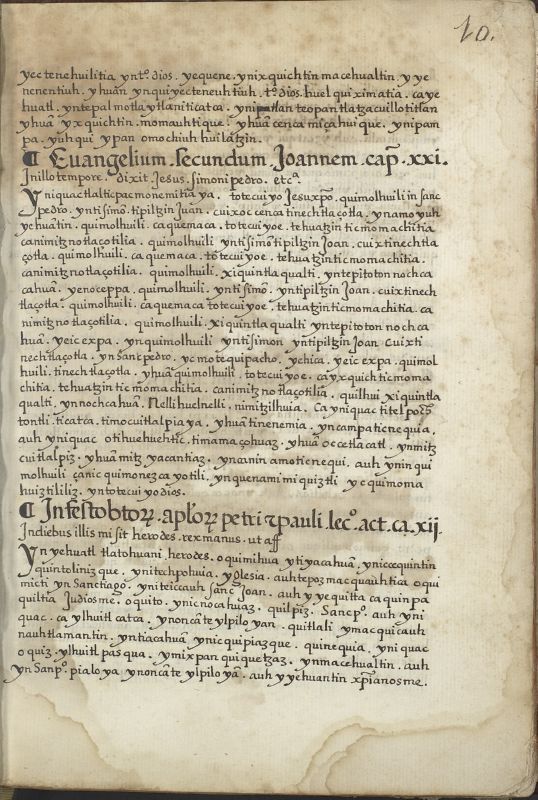 10.
yectenehuilitia ynto. dios. yequene. ynixquichtin macehualtin yye
nenentiuh. yhuan ynquiyecteneuhtiuh. to. dios. huel quiximatia. ca ye
huatl. yntepal motlaytlanitica. ynipan teopantlatzacuillotitlan
yhuā yxquichtin. nomauhtique. yhuā cenca miçahuique. ynipam
pa. yuhqui ypan omochiuh huilātzin.
¶ Euangelium. secundum Joannem. cap̄. xxi.
In illo tempore. dixit Jesus. simoni pedro. etcª.
Yniquac tlalticpac monemitiaya. totecuiyo Jesuxp̄o. quimolhuili in sanc
pedro. yntisimō. tipiltzin Juan. cuix oc cenca tinechtlaçotla. ynamo yuh
yehuātin. quimolhuili. ca quemaca. totecuiyoe. tehuatzin ticmomachitia
canimitznotlaçotilia. quimolhuili yntisimō tipiltzin Joan. cuix tinechtla
çotla. quimolhuili. ca quemaca. totecuiyoe. tehuatzin ticmomachitia.
canimitznotlaçotilia. quimolhuili. xiquintlaqualti. yntepitoton nochca
cahuā. yenoceppa. quimolhuili. yntisimō. yntipiltzin Joan. cuix tinech
tlaçotla. quimolhuili. ca quemaca totecuiyoe. tehuatzin ticmomachitia. ca
nimitznotlaçotilia. quimolhuili. xiquintlaqualti yntepitoton nochca
huā. yeic expa. ynquimolhuili yntisimon yntipiltzin Joan. cuix ti
nechtlaçotla. yn Sanc pedro. yc motequipacho. ychica. yeic expa. quimol
huili. tinechtlaçotla. yhuā quimolhuili. totecuiyoe. ca yxquich ticmoma
chitia. tehuatzin ticmomachitia. canimitznotlaçotilia. quilhui xiquintla
qualti. yn nochcahuā. Nelli huel nelli. nimitzilhuia. Ca yniquac titelpoch
tontli. ticatca. timocuitlalpiaya. yhuā tinenemia. yncampa ticnequia.
auh yniquac otihuehuehtic. timamaçohuaz. yhuā occe tlacatl. ynmitz
cuitlalpiz. yhuā mitzyacantiaz. yncanin amo ticnequi. auh ynin qui
molhuili çanic quimonezcayotili. ynquenami miquiztli yc quimoma
huiztililiz. yntotecuiyo dios.
¶ In festo btorꝝ. aplorꝝ petri ⁊ pauli. lecº. act. ca. xij.
In diebus illis misit herodes. rex manus. ut aff
Yn yehuatl tlatohuani. herodes. oquimihua ytiyacahuā ynicequintin
quintoliniz que. ynitechpohuia. yglesia. auh tepozmacquauhtica oqui
micti yn Sanctiago. yniteiccauh sanc Joan. auh yyequitta ca quin pa
quiltia Judiosme. oquito. ynic no cahuaz. quilpiz. Sanc pº. auh yni
quac. ca ylhuitl catca. ynoncāte ylpiloyan. quitlali ynmacquicauh
nauhtlamantin. yntiacahuā. ynicquipiazque. quinequia. yniquac
oquiz. ylhuitl pasqua. ymixpan quiquetzaz. ynmacehualtin. auh
yn San pº. pialoya ynoncāte ylpiloyā. auh yyehuantin xp̄ianosme.